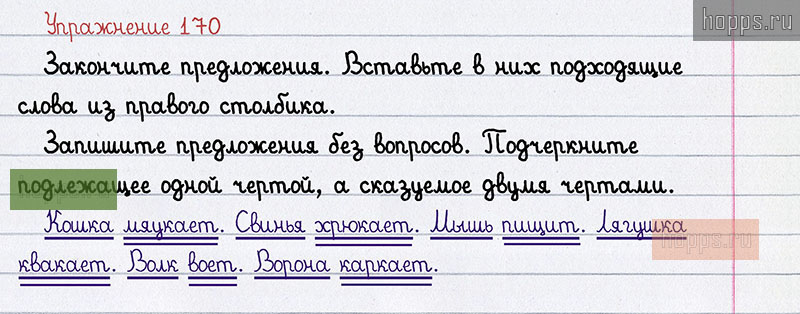 hopps.ru
Упражнение 170
Закончите предложения. Вставьте в них подходящие
слова из правого столбика.
Запишите предложения без вопросов. Подчеркните
подлежащее одной чертой, а сказуемое двумя чертами.
Кошка мяукает. Свинья хрюкает. Мышь пищит. Лягушка
hopps.ru
квакает. Волк воет. Ворона каркает.